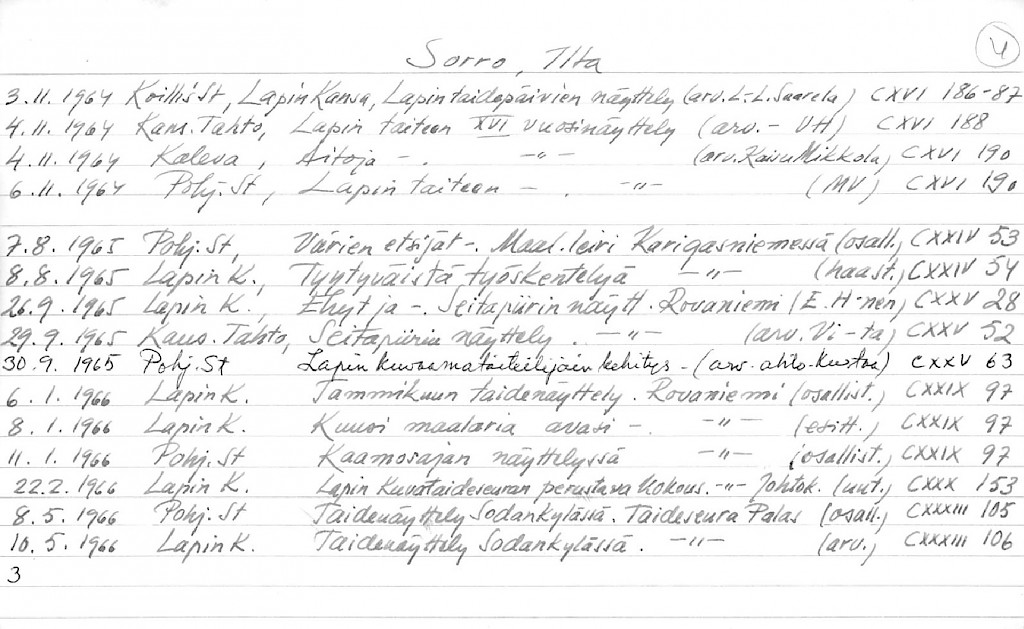 4
Sorro, Ilta
3.11.1964 Koillis St, Lapin Kansa, Lapin taidepäivien näyttely (arv. L-L. Saarela) CXVI 186-87
4.11.1964 Kans. Tahto, Lapin taiteen XVI vuosinäyttely (arv. - VH) CXVI 188
4.11.1964 Kaleva, Aitoja - . -"- (arv. Kaivu Mikkola) CXVI 190
6.11.1964 Pohj. St, Lapin taiteen - . -"- (MV) CXVI 190
7.8.1965 Pohj. St, Värien etsijät -. Maal. leiri Karigasniemessä (osall.) CXXIV 53
8.8.1965 Lapin K., Tyytyväistä työskentelyä -"- (haast.) CXXIV 54
26.9.1965 Lapin K., Ehyt ja -. Seitapiirin näytt. Rovaniemi (E. H-nen) CXXV 28
29.9.1965 Kans. Tahto, Seitapiirin näyttely . -"- (arv. Vi-ta) CXXV 52
30.9.1965 Pohj. St Lapin kuvaamataiteilijain kehitys - (arv. ahto-kustaa) CXXV 63
6.1.1966 Lapin K. Tammikuun taidenäyttely. Rovaniemi (osallist.) CXXIX 97
8.1.1966 Lapin K. Kuusi maalaria avasi -. -"- (esitt.) CXXIX 97
11.1.1966 Pohj. St Kaamosajan näyttelyssä -"- (osallist.) CXXIX 97
22.2.1966 Lapin K. Lapin Kuvataideseuran perustava kokous. -"- Johtok. (uut.) CXXX 153
8.5.1966 Pohj. St Taidenäyttely Sodankylässä. Taideseura Palas (osall.) CXXXIII 105
10.5.1966 Lapin K. Taidenäyttely Sodankylässä. -"- (arv.) CXXXIII 106
3